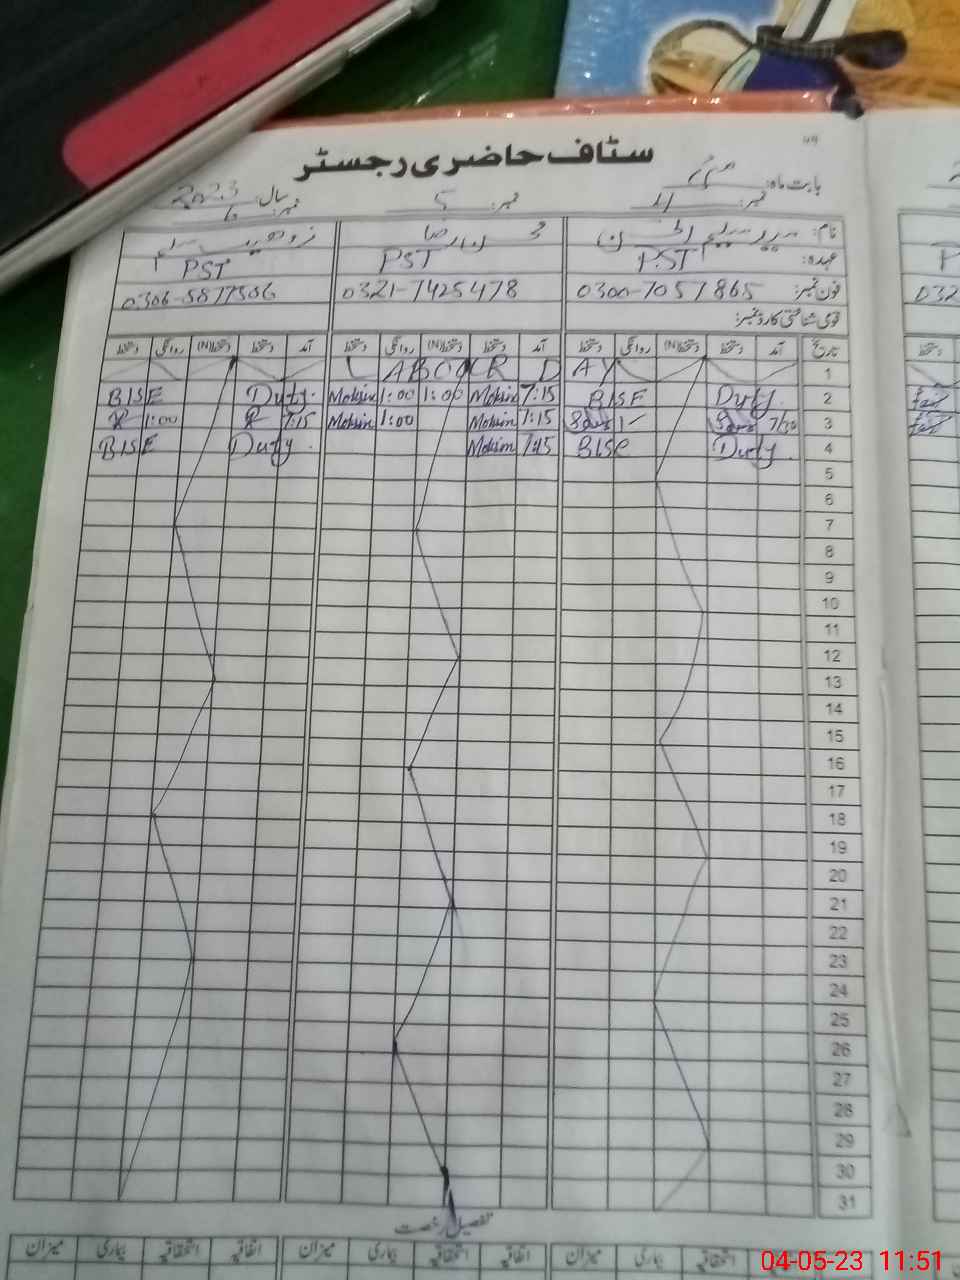 سٹاف حاضری رجسٹر
بابت ماہ: مئی سال: 2023
نمبر: 4 نمبر: 5 نمبر: 6
نام:
عہدہ: PST PST PST
فون نمبر: 0300-7057865 0321-7425478 0306-5877506
قومی شناختی کارڈ نمبر:
تاریخ آمد دستخط دستخط(N) روانگی دستخط آمد دستخط دستخط(N) روانگی دستخط آمد دستخط دستخط(N) روانگی دستخط
1 L ABOUR DAY
2 BISE Duty. Mohsin 1:00 1:00 Mohsin 7:15 BISE Duty.
3 1:00 7:15 Mohsin 1:00 Mohsin 7:15 1- 7/30
4 BISE Duty. Mohsin 7:15 BISE Duty.
5
6
7
8
9
10
11
12
13
14
15
16
17
18
19
20
21
22
23
24
25
26
27
28
29
30
31
تفصیل رخصت
اتفاقیہ استحقاقیہ بیماری میزان اتفاقیہ استحقاقیہ بیماری میزان اتفاقیہ استحقاقیہ بیماری میزان
04-05-23 11:51